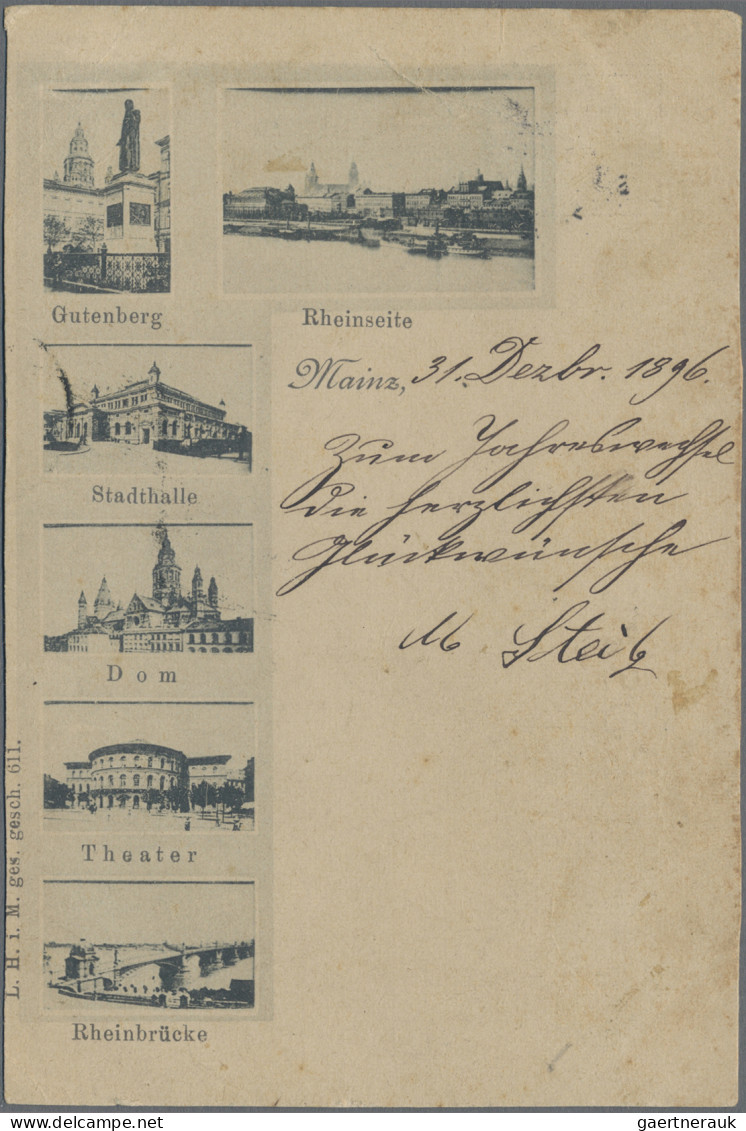 Gutenberg
Rheinseite
Mainz, 31. Dezbr. 1896.
Zum Jahreswechsel
die herzlichsten
Glückwünsche
M
Stadthalle
Dom
Theater
Rheinbrücke
L. H. i. M. ges. gesch. 611.
delcampe.net
gaertnerauk